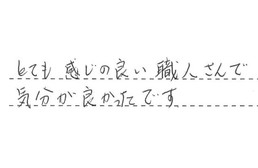 とても感じの良い職人さんで
気分が良かったです